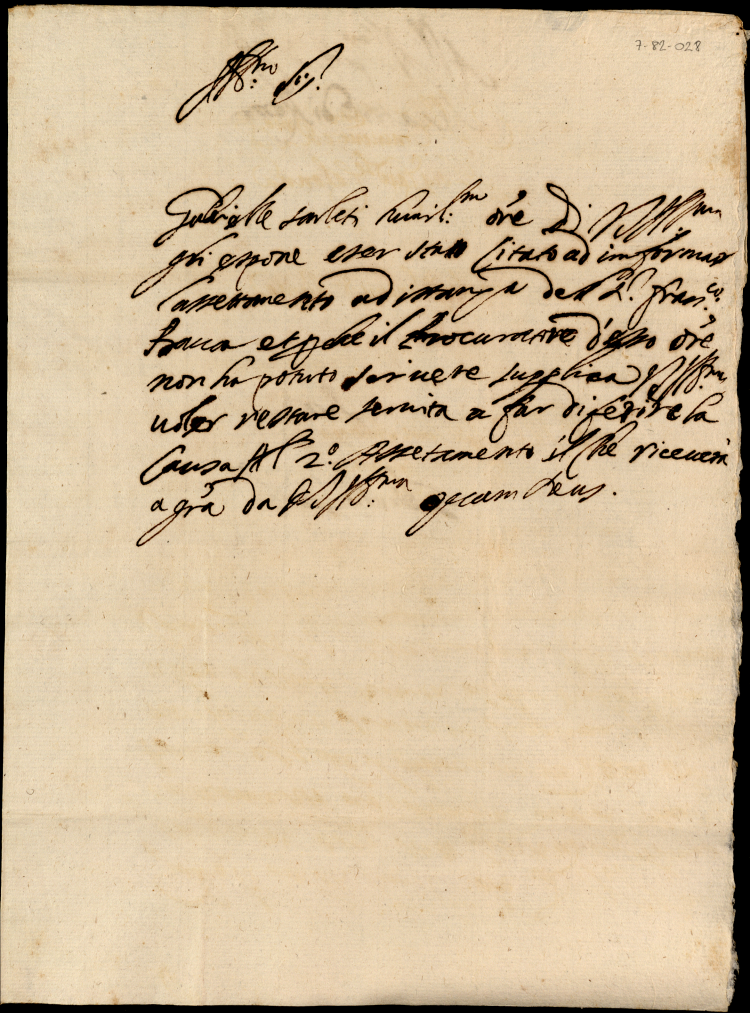 7-82-028
Ill:mo Sig:r
Gabrielle Scarleti humil:mo ōre di V S Ill:ma
gli espone eser stato Citato ad imformar
l'assettamento ad istanza del S:r Fran:co
et perche il Procuratore d'esso ōre
non ha potuto scrivere supplica V S Ill:ma
voler restare servita a far diferire la
Causa Al 2º Assetamento il che riceverà
a grã da V S Ill:ma quam Deus.